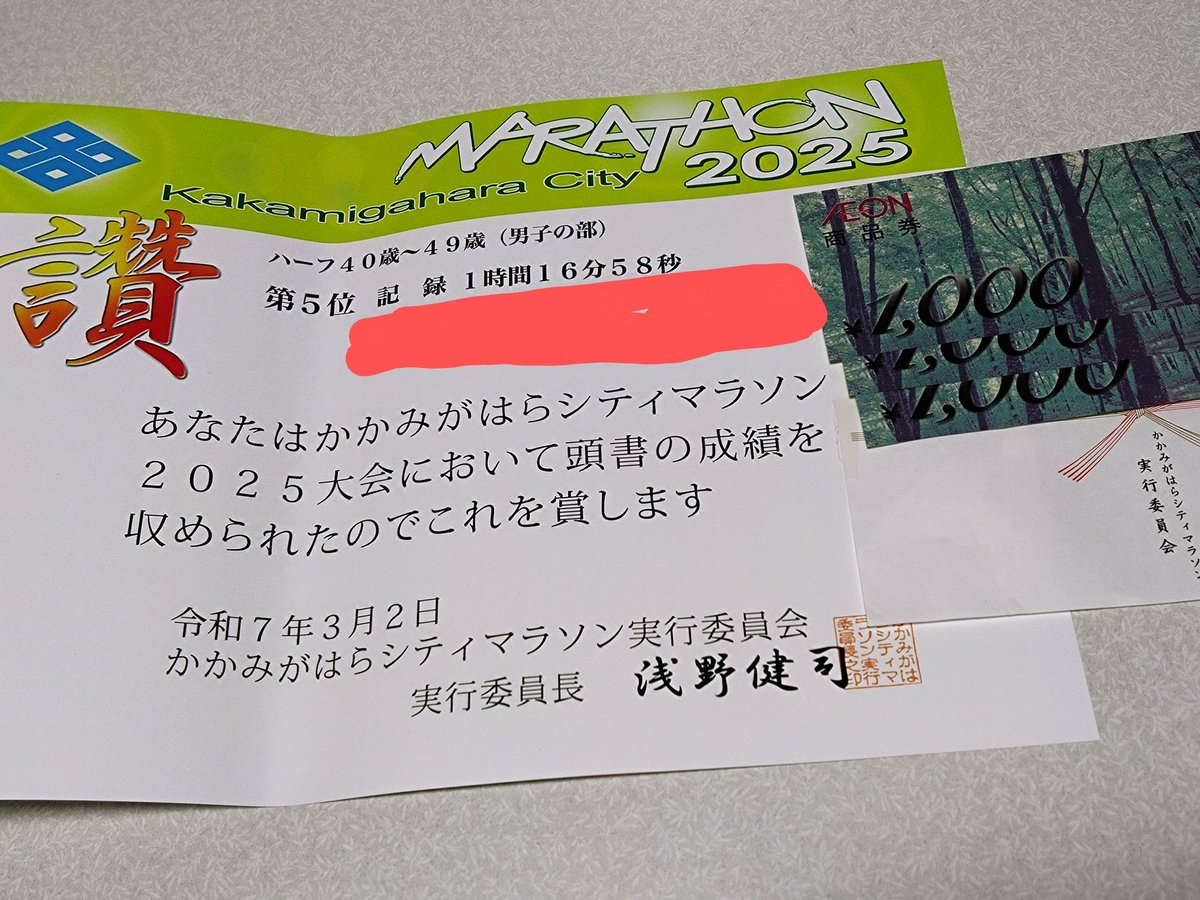 MARATHON
2025
Kakamigahara City
讃
ハーフ４０歳～４９歳（男子の部）
第５位 記 録 １時間１６分５８秒
あなたはかかみがはらシティマラソン
２０２５大会において頭書の成績を
収められたのでこれを賞します
令和７年３月２日
かかみがはらシティマラソン実行委員会
実行委員長 浅野健司
ÆON
商品券
¥1,000
¥1,000
¥1,000
かかみがはらシティマラソン
実行委員会